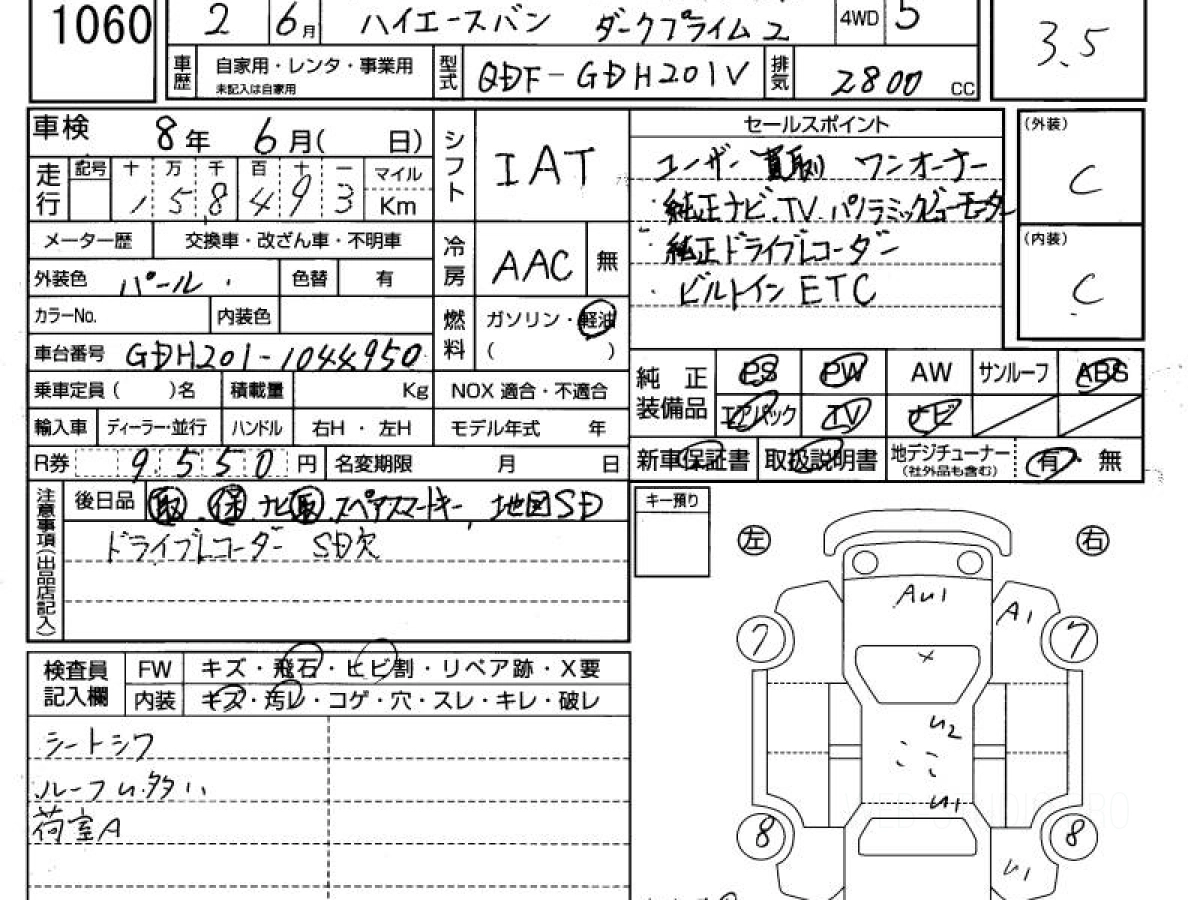 1060 2 6月 ハイエースバン ダークプライム2 4WD 5 3.5
車歴 自家用・レンタ・事業用 未記入は自家用 型式 QDF-GDH201V 排気 2800 CC
車検 8年 6月( 日) シフト IAT セールスポイント (外装) C
ユーザー買取り ワンオーナー
走行 記号 十 万 千 百 十 一 マイル
158493 Km
・純正ナビ、TV、パノラミックビューモーター
メーター歴 交換車・改ざん車・不明車 冷房 AAC 無 ・純正ドライブレコーダー (内装) C
外装色 パール 色替 有 ・ビルトインETC
カラーNo. 内装色 燃料 ガソリン・軽油
車台番号 GDH201-1044950 ( )
乗車定員( )名 積載量 Kg NOX 適合・不適合 純正装備品 PS PW AW サンルーフ ABS
エアバック TV ナビ
輸入車 ディーラー・並行 ハンドル 右H・左H モデル年式 年
R券 9550円 名変期限 月 日 新車保証書 取扱説明書 地デジチューナー (社外品も含む) 有・無
注意事項(出品店記入) 後日品 取、保、ナビ取、スペアスマートキー、地図SD
ドライブレコーダー SD欠
キー預り
左 右
AU1 A1
7 7
検査員記入欄 FW キズ・飛石・ヒビ割・リペア跡・X要
内装 キズ・汚レ・コゲ・穴・スレ・キレ・破レ
X
シートシワ
U2
ルーフU多い
U1
荷室A
8 8
U1